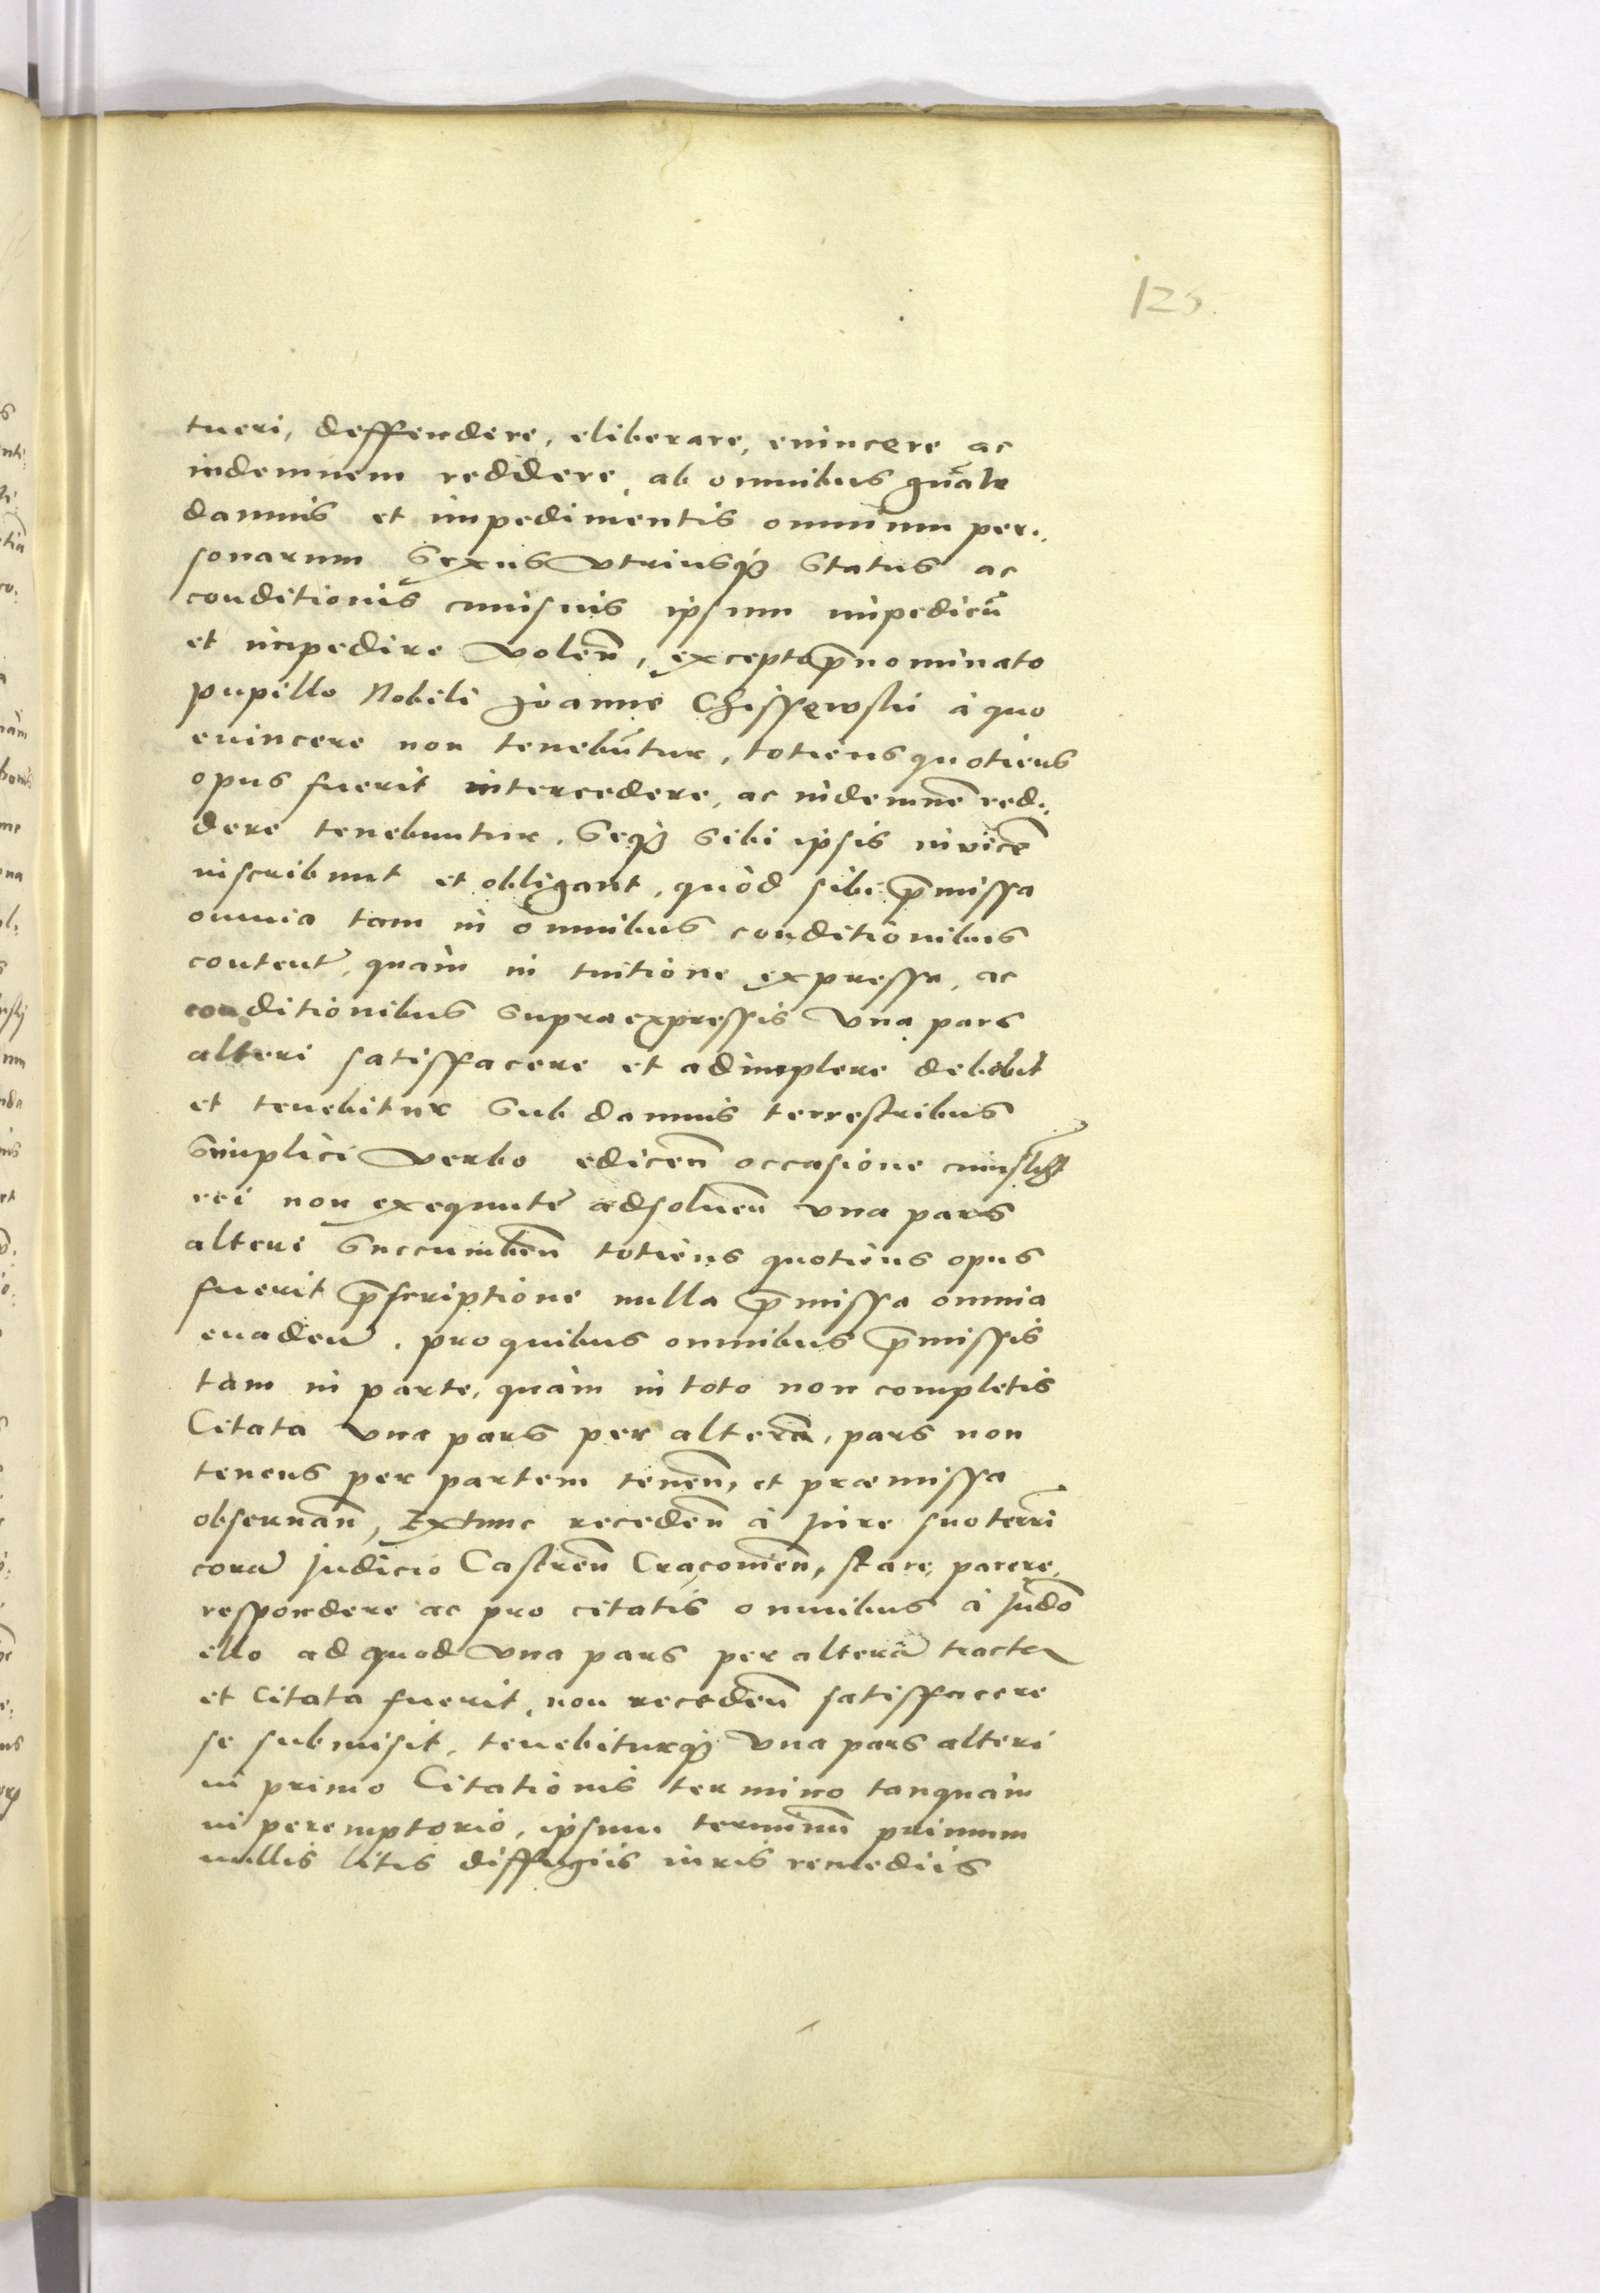 125.
tueri, deffendere, eliberare, euincere ac
indemnem reddere, ab omnibus
damnis et impedimentis omnium per:
sonarum Sexus Vtriusq3 Status ac
conditionis cuiusuis ipsum impedieñ
et impedire Voleñ, excepto p̄nominato
pupillo Nobili Joanne Chissęwski à quo
euincere non tenebūtur, totiens quotiens
opus fuerit intercedere, ac indemnē red:
dere tenebuntur. Seq3 Sibi ipsis inuicē
inscribunt et obligant, quòd sibi p̄missa
omnia tam in omnibus conditionibus
content̃, quàm in tuitione expressa, ac
conditionibus Supraexpressis Vna pars
alteri satisffacere et adimplere debebit
et tenebitur Sub damnis terrestribus
Simplici Verbo ediceñ occasione
rei non exequute adsolueñ vna pars
alteri Succumbeñ totiens quotiens opus
fuerit p̄scriptione nulla p̄missa omnia
euadeñ. pro quibus omnibus p̄missis
tàm in parte, quàm in toto non completis
Citata vna pars per alterā, pars non
tenens per partem teneñ, et præmissa
obseruañ, Extunc recedeñ à jure suo terrī
corā Judicio Castreñ Cracouieñ, stare, parere,
respondere ac pro citatis omnibus à Judō
illo ad quod Vna pars per alterā
et Citata fuerit, non recedeñ satisffacere
se submisit, tenebiturq3 Vna pars alteri
in primo Citationis termino tanquàm
in peremptorio, ipsum terminū primum
nullis litis diffugiis iuris remediis